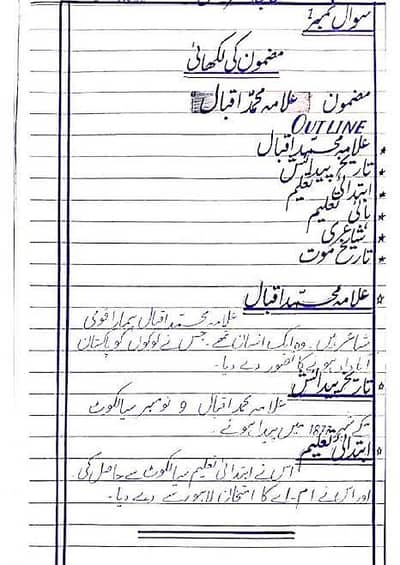 سوال نمبر 1
مضمون کی لکھائی
مضمون علامہ محمد اقبال
OUTLINE
* علامہ محمد اقبال
* تاریخ پیدائش
* ابتدائی تعلیم
* ہائی تعلیم
* شاعری
* تاریخ موت
علامہ محمد اقبال
علامہ محمد اقبال ہمارا قومی
شاعر ہیں۔ وہ ایک انسان تھے۔ جس نے لوگوں کو پاکستان
آباد ہونے کا تصور دے دیا۔
تاریخ پیدائش
علامہ محمد اقبال 9 نومبر سیالکوٹ
میں پیدا ہوئے۔
ابتدائی تعلیم
اس نے ابتدائی تعلیم سیالکوٹ سے حاصل کی۔
اور اس نے ام۔اے کا امتحان لاہور سے دے دیا۔